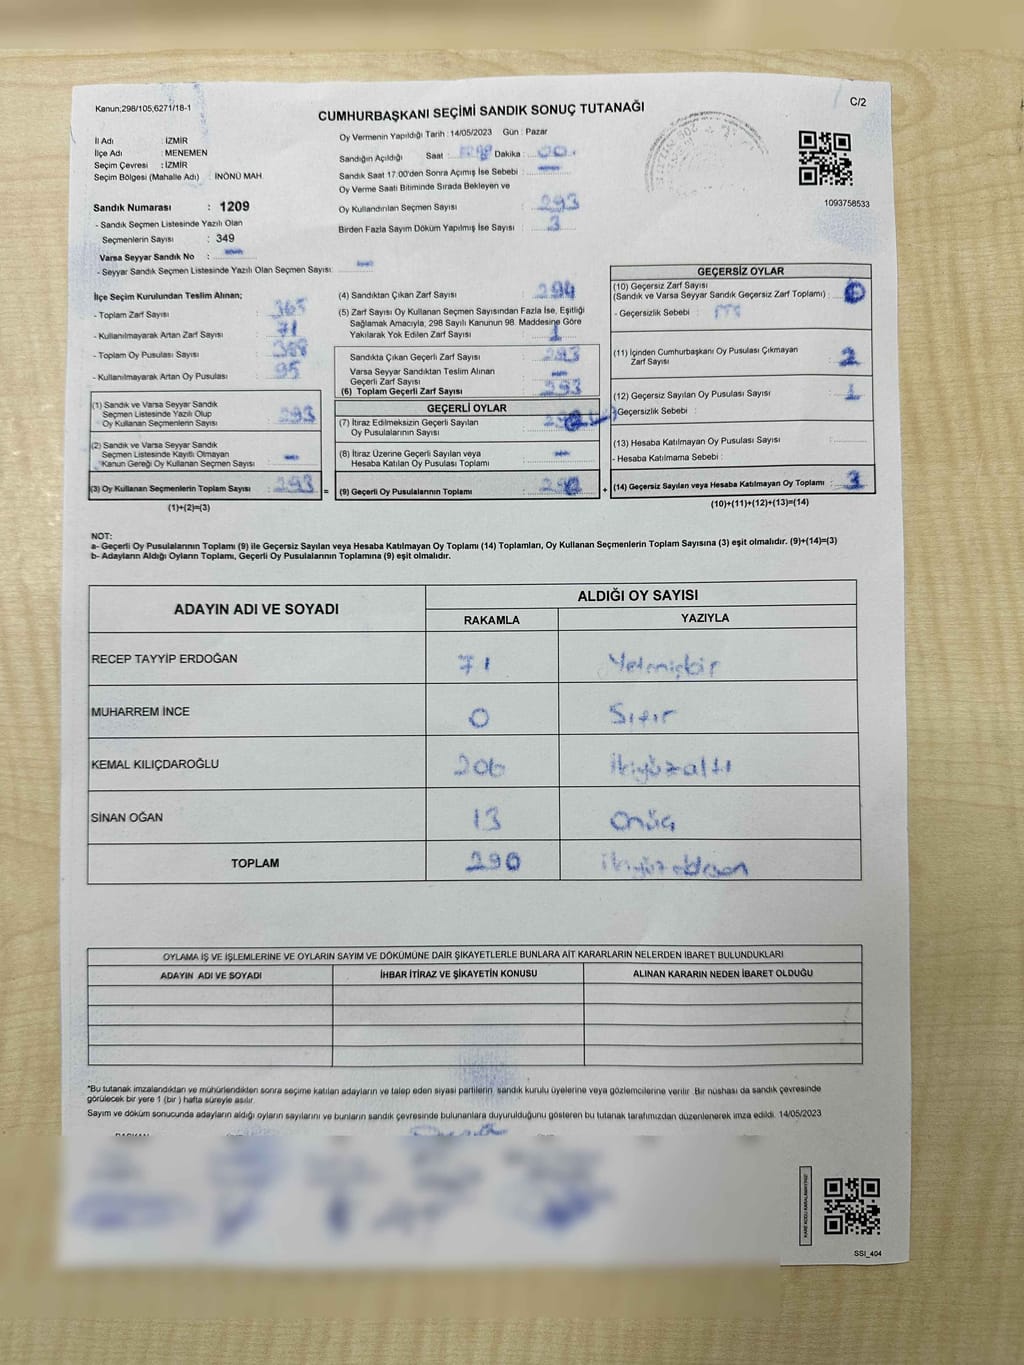 Kanun;298/105;6271/18-1
C/2
CUMHURBAŞKANI SEÇİMİ SANDIK SONUÇ TUTANAĞI
İl Adı : İZMİR
İlçe Adı : MENEMEN
Seçim Çevresi : İZMİR
Seçim Bölgesi (Mahalle Adı) : İNÖNÜ MAH.
Sandık Numarası : 1209
- Sandık Seçmen Listesinde Yazılı Olan
Seçmenlerin Sayısı : 349
Varsa Seyyar Sandık No :
- Seyyar Sandık Seçmen Listesinde Yazılı Olan Seçmen Sayısı:
Oy Vermenin Yapıldığı Tarih : 14/05/2023 Gün : Pazar
Sandığın Açıldığı Saat : Dakika : 00
Sandık Saat 17.00'den Sonra Açımış İse Sebebi :
Oy Verme Saati Bitiminde Sırada Bekleyen ve
Oy Kullandırılan Seçmen Sayısı : 293
Birden Fazla Sayım Döküm Yapılmış İse Sayısı : 3
1093758533
İlçe Seçim Kurulundan Teslim Alınan;
- Toplam Zarf Sayısı : 365
- Kullanılmayarak Artan Zarf Sayısı : 71
- Toplam Oy Pusulası Sayısı : 388
- Kullanılmayarak Artan Oy Pusulası : 95
(1) Sandık ve Varsa Seyyar Sandık
Seçmen Listesinde Yazılı Olup
Oy Kullanan Seçmenlerin Sayısı : 293
(2) Sandık ve Varsa Seyyar Sandık
Seçmen Listesinde Kayıtlı Olmayan
Kanun Gereği Oy Kullanan Seçmen Sayısı :
(3) Oy Kullanan Seçmenlerin Toplam Sayısı : 293 =
(1)+(2)=(3)
(4) Sandıktan Çıkan Zarf Sayısı : 294
(5) Zarf Sayısı Oy Kullanan Seçmen Sayısından Fazla İse, Eşitliği
Sağlamak Amacıyla, 298 Sayılı Kanunun 98. Maddesine Göre
Yakılarak Yok Edilen Zarf Sayısı : 1
Sandıkta Çıkan Geçerli Zarf Sayısı : 293
Varsa Seyyar Sandıktan Teslim Alınan
Geçerli Zarf Sayısı :
(6) Toplam Geçerli Zarf Sayısı : 293
GEÇERLİ OYLAR
(7) İtiraz Edilmeksizin Geçerli Sayılan
Oy Pusulalarının Sayısı :
(8) İtiraz Üzerine Geçerli Sayılan veya
Hesaba Katılan Oy Pusulası Toplamı :
(9) Geçerli Oy Pusulalarının Toplamı : 290 +
GEÇERSİZ OYLAR
(10) Geçersiz Zarf Sayısı
(Sandık ve Varsa Seyyar Sandık Geçersiz Zarf Toplamı) :
- Geçersizlik Sebebi :
(11) İçinden Cumhurbaşkanı Oy Pusulası Çıkmayan
Zarf Sayısı : 2
(12) Geçersiz Sayılan Oy Pusulası Sayısı : 1
Geçersizlik Sebebi :
(13) Hesaba Katılmayan Oy Pusulası Sayısı :
- Hesaba Katılmama Sebebi :
(14) Geçersiz Sayılan veya Hesaba Katılmayan Oy Toplamı : 3
(10)+(11)+(12)+(13)=(14)
NOT:
a- Geçerli Oy Pusulalarının Toplamı (9) ile Geçersiz Sayılan veya Hesaba Katılmayan Oy Toplamı (14) Toplamları, Oy Kullanan Seçmenlerin Toplam Sayısına (3) eşit olmalıdır. (9)+(14)=(3)
b- Adayların Aldığı Oyların Toplamı, Geçerli Oy Pusulalarının Toplamına (9) eşit olmalıdır.
ADAYIN ADI VE SOYADI ALDIĞI OY SAYISI
RAKAMLA YAZIYLA
RECEP TAYYİP ERDOĞAN 71 Yetmişbir
MUHARREM İNCE 0 Sıfır
KEMAL KILIÇDAROĞLU 206 İkiyüzaltı
SİNAN OĞAN 13 Onüç
TOPLAM 290
OYLAMA İŞ VE İŞLEMLERİNE VE OYLARIN SAYIM VE DÖKÜMÜNE DAİR ŞİKAYETLERLE BUNLARA AİT KARARLARIN NELERDEN İBARET BULUNDUKLARI
ADAYIN ADI VE SOYADI İHBAR İTİRAZ VE ŞİKAYETİN KONUSU ALINAN KARARIN NEDEN İBARET OLDUĞU
"Bu tutanak imzalandıktan ve mühürlendikten sonra seçime katılan adayların ve talep eden siyasi partilerin, sandık kurulu üyelerine veya gözlemcilerine verilir. Bir nüshası da sandık çevresinde
görülecek bir yere 1 (bir) hafta süreyle asılır.
Sayım ve döküm sonucunda adayların aldığı oyların sayılarını ve bunların sandık çevresinde bulunanlara duyurulduğunu gösteren bu tutanak tarafımızdan düzenlenerek imza edildi. 14/05/2023
KARE KODU KARALAMAYINIZ!
SSI_404